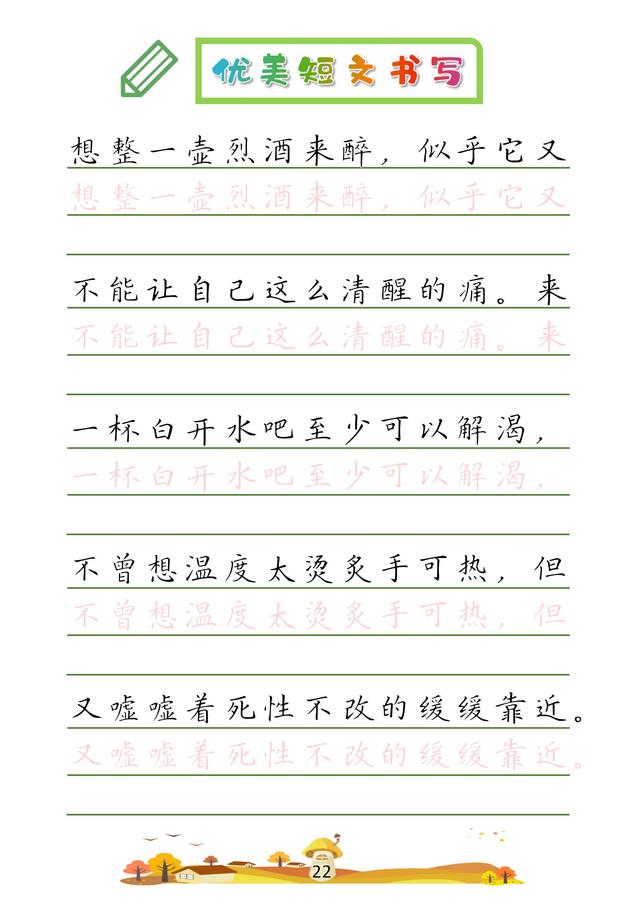 优美短文书写
想整一壶烈酒来醉，似乎它又
想整一壶烈酒来醉，似乎它又
不能让自己这么清醒的痛。来
不能让自己这么清醒的痛。来
一杯白开水吧至少可以解渴，
一杯白开水吧至少可以解渴，
不曾想温度太烫炙手可热，但
不曾想温度太烫炙手可热，但
又嘘嘘着死性不改的缓缓靠近。
又嘘嘘着死性不改的缓缓靠近。
22